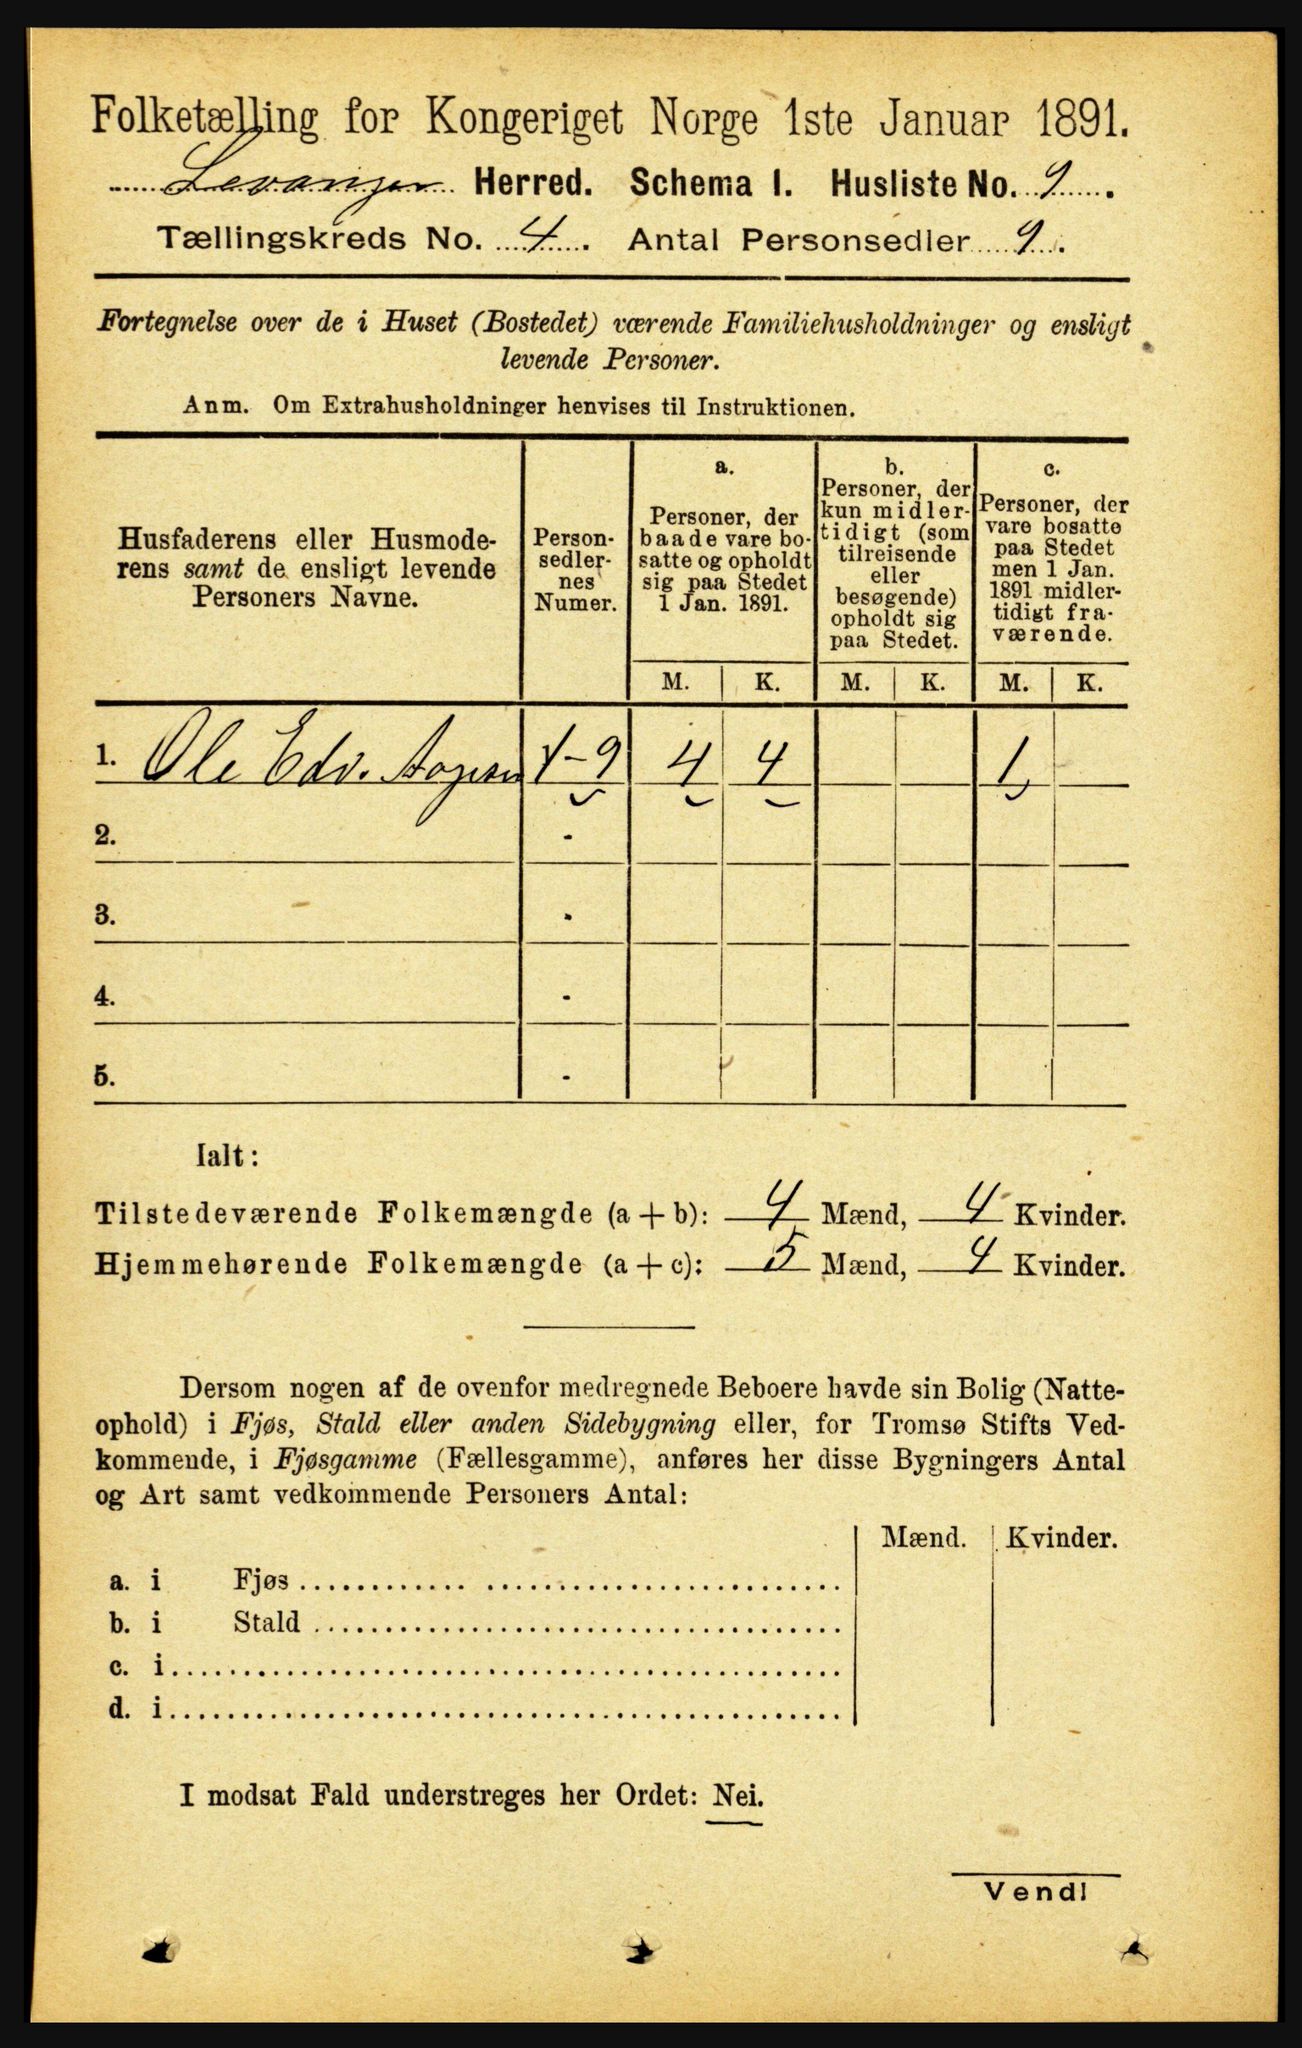 Folketælling for Kongeriget Norge 1ste Januar 1891.
Levanger Herred. Schema I. Husliste No. 9.
Tællingskreds No. 4. Antal Personsedler 9.
Fortegnelse over de i Huset (Bostedet) værende Familiehusholdninger og ensligt
levende Personer.
Anm. Om Extrahusholdninger henvises til Instruktionen.
Husfaderens eller Husmode-
rens samt de ensligt levende
Personers Navne.
Person-
sedler-
nes
Numer.
a.
Personer, der
baade vare bo-
satte og opholdt
sig paa Stedet
1 Jan. 1891.
b.
Personer, der
kun midler-
tidigt (som
tilreisende
eller
besøgende)
opholdt sig
paa Stedet.
c.
Personer, der
vare bosatte
paa Stedet
men 1 Jan.
1891 midler-
tidigt fra-
værende.
M. K. M. K. M. K.
1. Ole Edv. Aagesen 1-9 4 4 1
2. -
3. -
4. -
5. -
Ialt:
Tilstedeværende Folkemængde (a + b): 4 Mænd, 4 Kvinder.
Hjemmehørende Folkemængde (a + c): 5 Mænd, 4 Kvinder.
Dersom nogen af de ovenfor medregnede Beboere havde sin Bolig (Natte-
ophold) i Fjøs, Stald eller anden Sidebygning eller, for Tromsø Stifts Ved-
kommende, i Fjøsgamme (Fællesgamme), anføres her disse Bygningers Antal
og Art samt vedkommende Personers Antal:
Mænd. Kvinder.
a. i Fjøs
b. i Stald
c. i
d. i
I modsat Fald understreges her Ordet: Nei.
Vend!